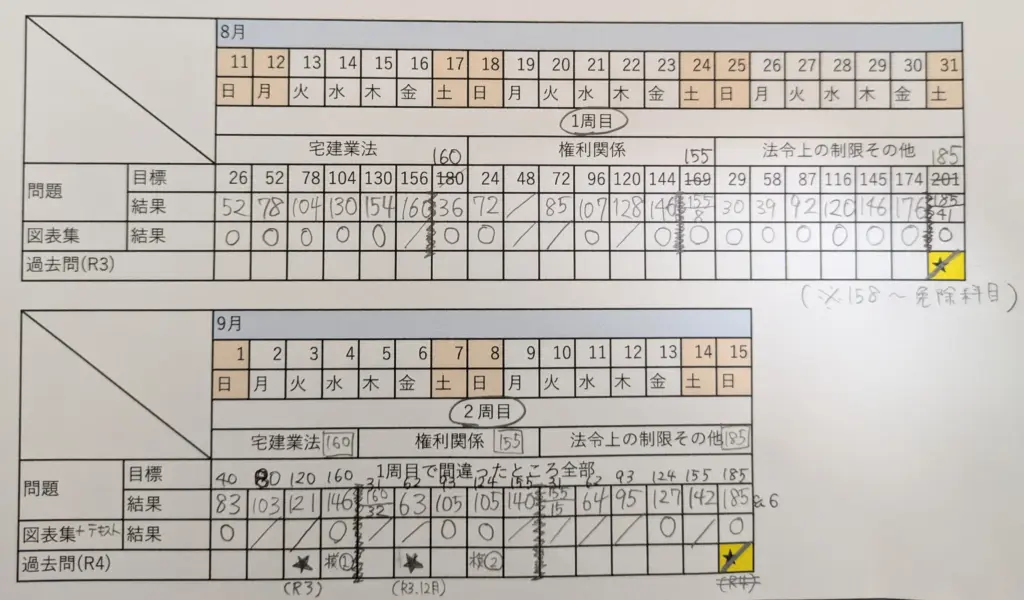 8月
11 12 13 14 15 16 17 18 19 20 21 22 23 24 25 26 27 28 29 30 31
日 月 火 水 木 金 土 日 月 火 水 木 金 土 日 月 火 水 木 金 土
1周目
宅建業法 160 権利関係 155 法令上の制限その他 185
問題 目標 26 52 78 104 130 156 180 24 48 72 96 120 144 169 29 58 87 116 145 174 201
結果 52 78 104 130 154 160 36 72 / 85 107 128 146 155 8 30 39 92 120 146 176 185 41
図表集 結果 ○ ○ ○ ○ ○ / ○ ○ / / ○ / ○ ○ ○ ○ ○ ○ ○ ○ ○
過去問(R3) ★
(※158～免除科目)
9月
1 2 3 4 5 6 7 8 9 10 11 12 13 14 15
日 月 火 水 木 金 土 日 月 火 水 木 金 土 日
2周目
宅建業法 160 権利関係 155 法令上の制限その他 185
1周目で間違ったところ全部
問題 目標 40 80 120 160 31 62 93 124 155 31 62 93 124 155 185
結果 83 103 121 146 160 32 63 105 105 140 155 15 64 95 127 142 185 & 6
図表集+テキスト 結果 ○ / / ○ / / ○ ○ / / / / ○ / ○
過去問(R4) ★ 模① ★ 模② ★
(R3) (R3.12月) (R4)